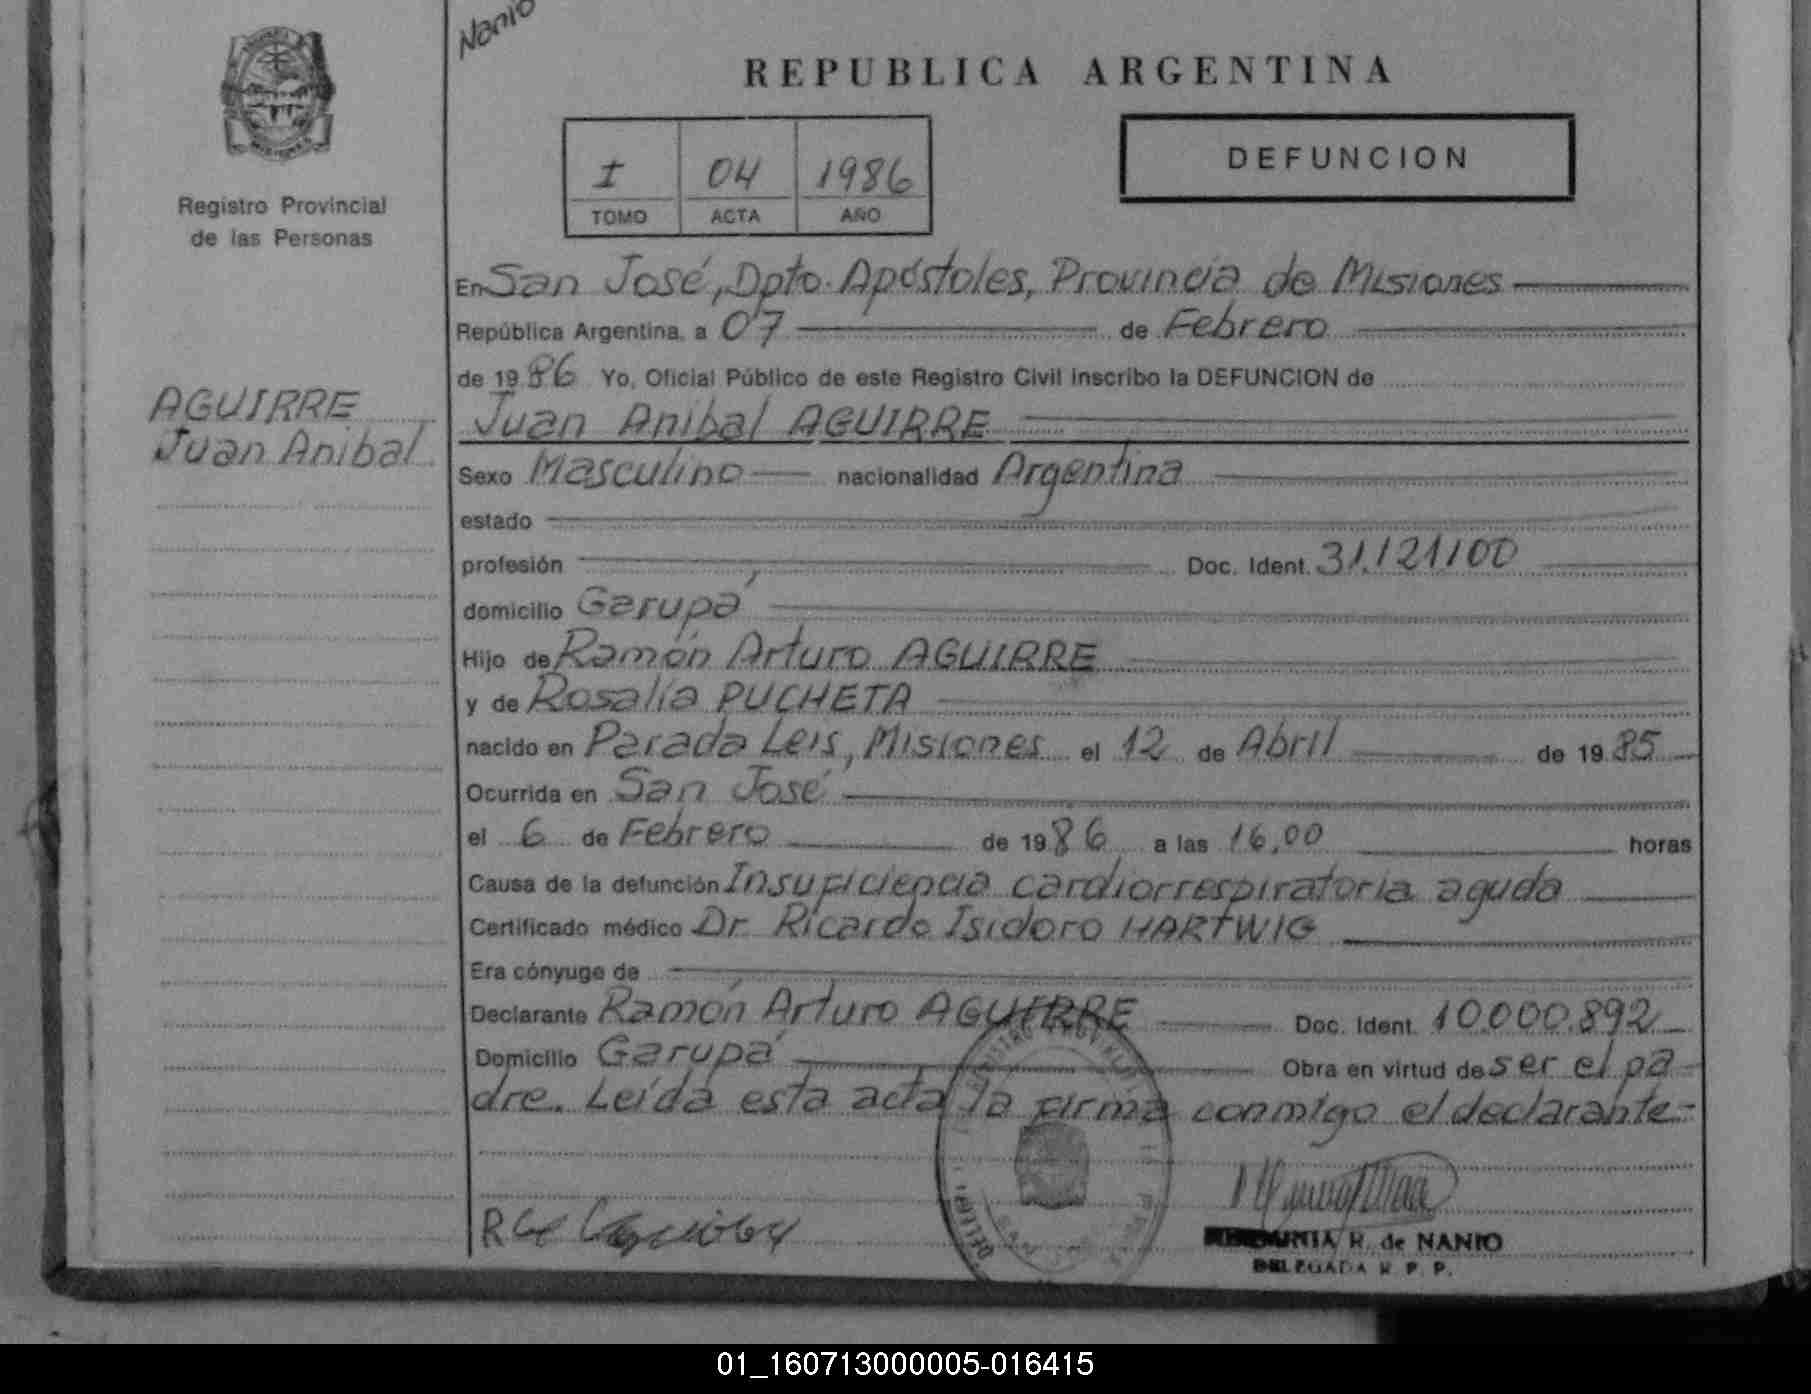 Nanio
REPUBLICA ARGENTINA
I 04 1986
TOMO ACTA AÑO
DEFUNCION
Registro Provincial
de las Personas
AGUIRRE
Juan Anibal
En San José, Dpto. Apóstoles, Provincia de Misiones
República Argentina, a 07 de Febrero
de 1986 Yo, Oficial Público de este Registro Civil inscribo la DEFUNCION de
Juan Anibal AGUIRRE
Sexo Masculino nacionalidad Argentina
estado
profesión Doc. Ident. 31.121.100
domicilio Garupá
Hijo de Ramón Arturo AGUIRRE
y de Rosalía PUCHETA
nacido en Parada Leis, Misiones el 12 de Abril de 1985
Ocurrida en San José
el 6 de Febrero de 1986 a las 16,00 horas
Causa de la defunción Insuficiencia cardiorrespiratoria aguda
Certificado médico Dr. Ricardo Isidoro HARTWIG
Era cónyuge de
Declarante Ramón Arturo AGUIRRE Doc. Ident. 10.000.892
Domicilio Garupá Obra en virtud de ser el pa
dre. Leída esta acta la firma conmigo el declarante-
R. de NANIO
DELEGADA R. P. P.
01_160713000005-016415